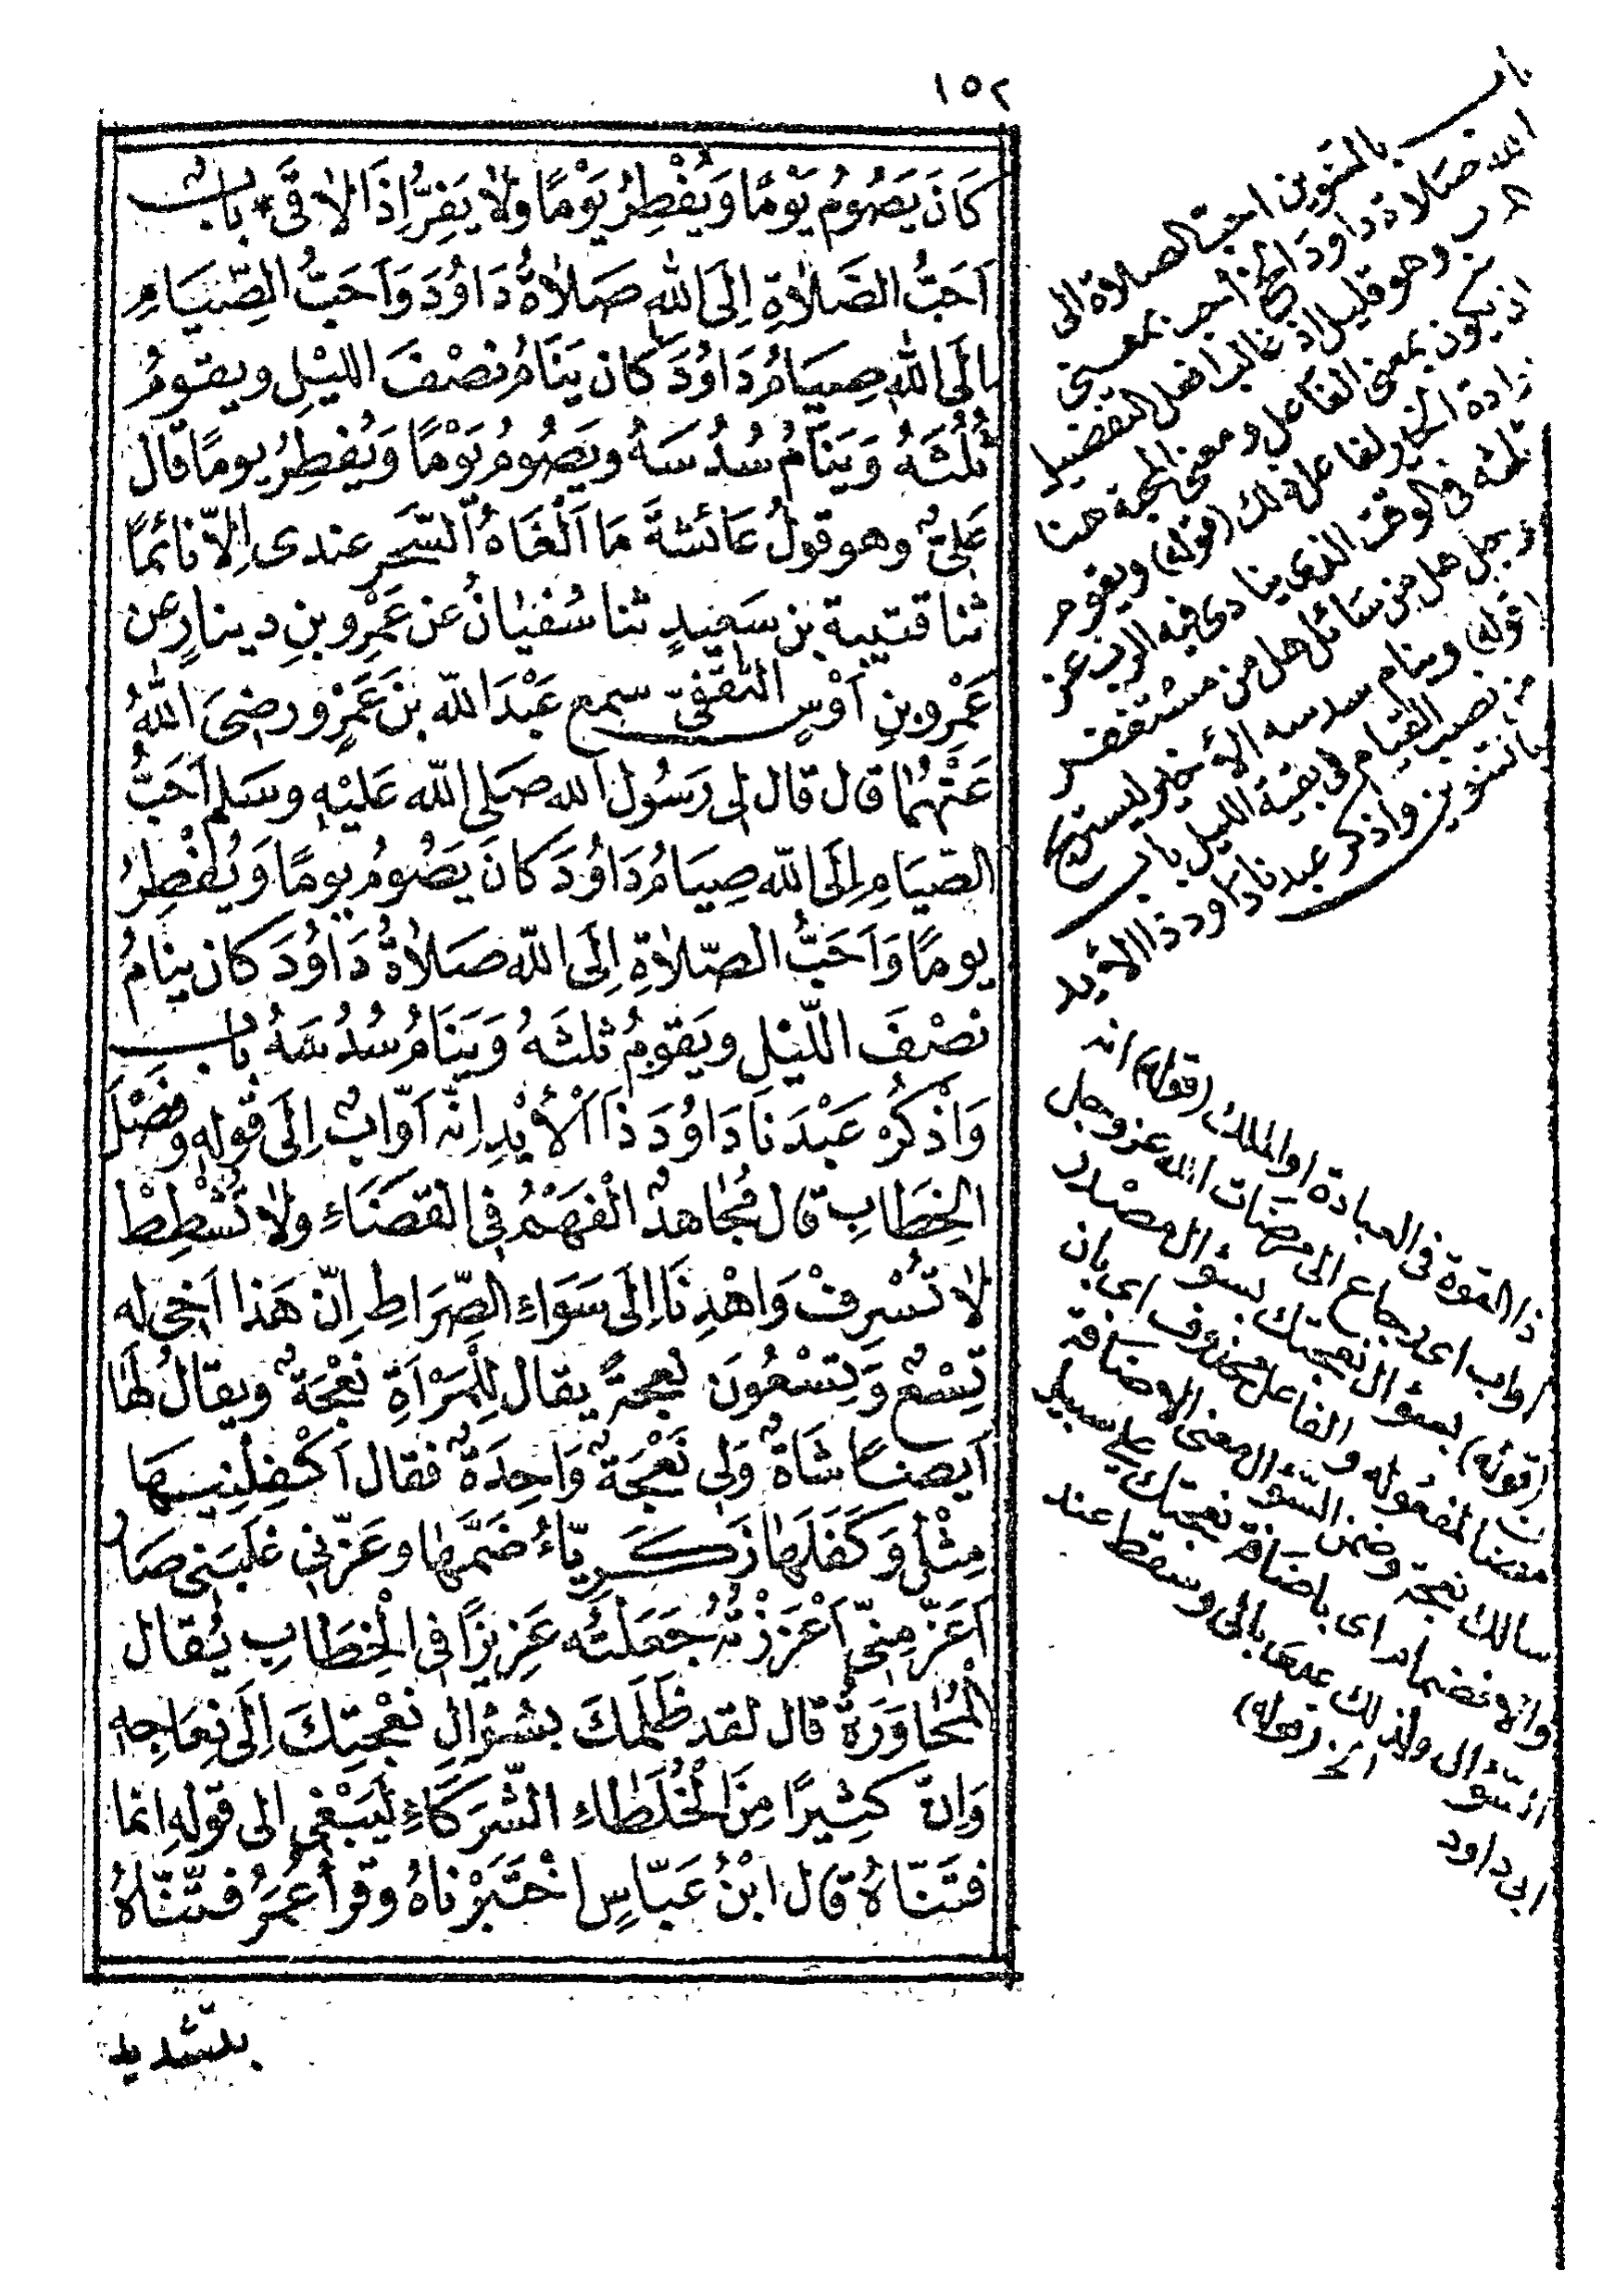 ١٥٢
كَانَ يَصُومُ يَوْمًا وَيُفْطِرُ يَوْمًا وَلَا يَفِرُّ اِذَا لَاقَى * بابٌ
اَحَبُّ الصَّلَاةِ اِلَى اللهِ صَلَاةُ دَاوُدَ وَاَحَبُّ الصِّيَامِ
اِلَى اللهِ صِيَامُ دَاوُدَ كَانَ يَنَامُ نِصْفَ الليْلِ ويقومُ
ثُلُثَهُ وَيَنَامُ سُدُسَهُ ويَصُومُ يَوْمًا وَيُفْطِرُ يومًا قال
عَلِىٌّ وهو قولُ عَائشةَ مَا اَلْفَاهُ السَّحَر عندى اِلّا نَائمًا
ثنا قتيبة بن سَعيدٍ ثنا سُفيَانُ عن عَمْرِو بنِ دينارٍ عن
عَمْرِو بنِ اَوْسٍ الثقفىّ سمع عَبْدَ اللّه بْنَ عَمْرٍو رضىَ اللّٰهُ
عَنْهُمَا قال قال لى رَسُول الله صَلى اللّه عَليْهِ وسَلم اَحَبُّ
الصِّيَامِ اِلَى اللّه صِيَامُ دَاوُدَ كانَ يَصُومُ يومًا وَيُفْطِرُ
يومًا وَاَحَبُّ الصّلَاةِ اِلَى اللّه صَلَاةُ دَاوُدَ كان ينامُ
نصْفَ اللّيْلِ ويَقومُ ثلثَهُ وَيَنَامُ سُدُسَهُ بابٌ
وَاذْكُرْ عَبْدَنَا دَاوُدَ ذَا اَلْأَيْدِ اِنّه اَوّابٌ اِلَى قولِهِ وفَصْلَ
الخِطَابِ قال مُجَاهدٌ الْفَهْمُ فِى القَضَاءِ ولَا تُشْطِطْ
لَا تُسْرِفْ وَاهْدِنَا اِلَى سَوَاءِ الصِّرَاطِ اِنّ هَذا اَخِى له
تِسْعٌ وَتِسْعُونَ نعجةً يقال لِلْمَرْاَةِ نَعْجَةٌ ويقالُ لهَا
اَيضًا شَاةٌ وَلِى نَعْجَةٌ وَاحِدَةٌ فقال اَكْفِلْنِيهَا
مِثْلُ وَكَفَلَهَا زَكَرِيّاءُ ضَمَّهَا وعَزّنِى غَلَبَنى صَارَ
اَعَزّ مِنِّى اَعْزَزْتُهُ جَعَلْتُه عَزِيزًا فِى الْخِطَابِ يُقال
الْمُحَاوَرَةُ قال لقد ظَلمَكَ بسُؤالِ نَعْجَتِكَ اِلَى نِعَاجِهِ
وَاِنّ كثِيرًا مِنَ الْخُلَطَاءِ الشّرَكَاءِ لَيَبْغِى الى قولِهِ انما
فَتَنّاهُ قال ابْنُ عَبّاسٍ اخْتَبَرْناهُ وقرأَ عُمَرُ فَتّنّاهُ
بتشديد
باب
بالتنوين احبّ الصلاة الى
الله صلاة داود الخ احب بمعنى
وهو قليل اذ غالب افعل التفضيل
ان يكون بمعنى الفاعل ومعنى المحبة هنا
ارادة الخير لفاعل ذلك (قوله) ويقوم
ثلثه فى الوقت الذى ينادى فيه الرب عز
وجل هل من سائل هل من مستغفر
(قوله) وينام سدسه الأخير ليستريح
من نصب القيام فى بقية الليل باب
بالتنوين واذكر عبدنا داود ذا الأيد
ذا القوة فى العبادة او الملك (قوله) انه
اواب اى رجاع الى مرضات الله عز وجل
(قوله) بسؤال نعجتك سؤال مصدر
مضاف لمفعوله والفاعل محذوف اى بان
سالك نعجة وضمن السؤال معنى الاضافة
والانضمام اى باضافة نعجتك على سبيل
السؤال ولذلك عدى بالى وسقط عند
ابى داود
الخ (قوله)